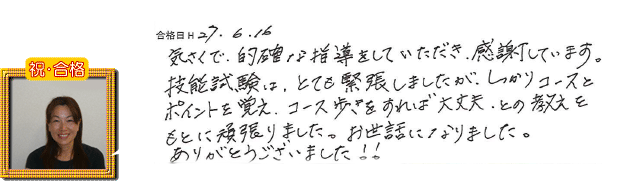 合格日H27.6.16
気さくで、的確な指導をしていただき、感謝しています。
祝・合格
技能試験は、とても緊張しましたが、しっかりコースと
ポイントを覚え、コース歩きをすれば大丈夫、との教えを
もとに頑張りました。お世話になりました。
ありがとうございました!!